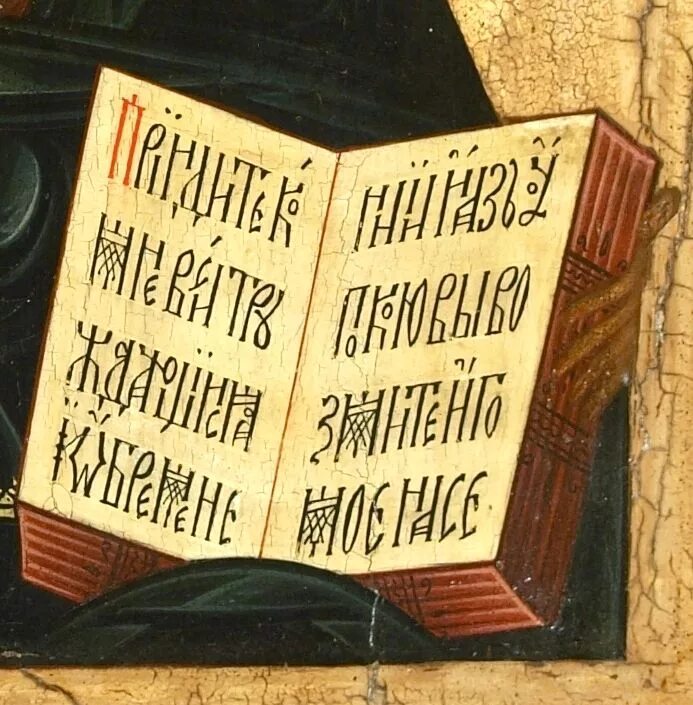 Прїидите ко
мне вси трꙋ
ждающїисѧ
и ѡбремене
нїи и азъ оу
покою вы во
змите иго
мое на се